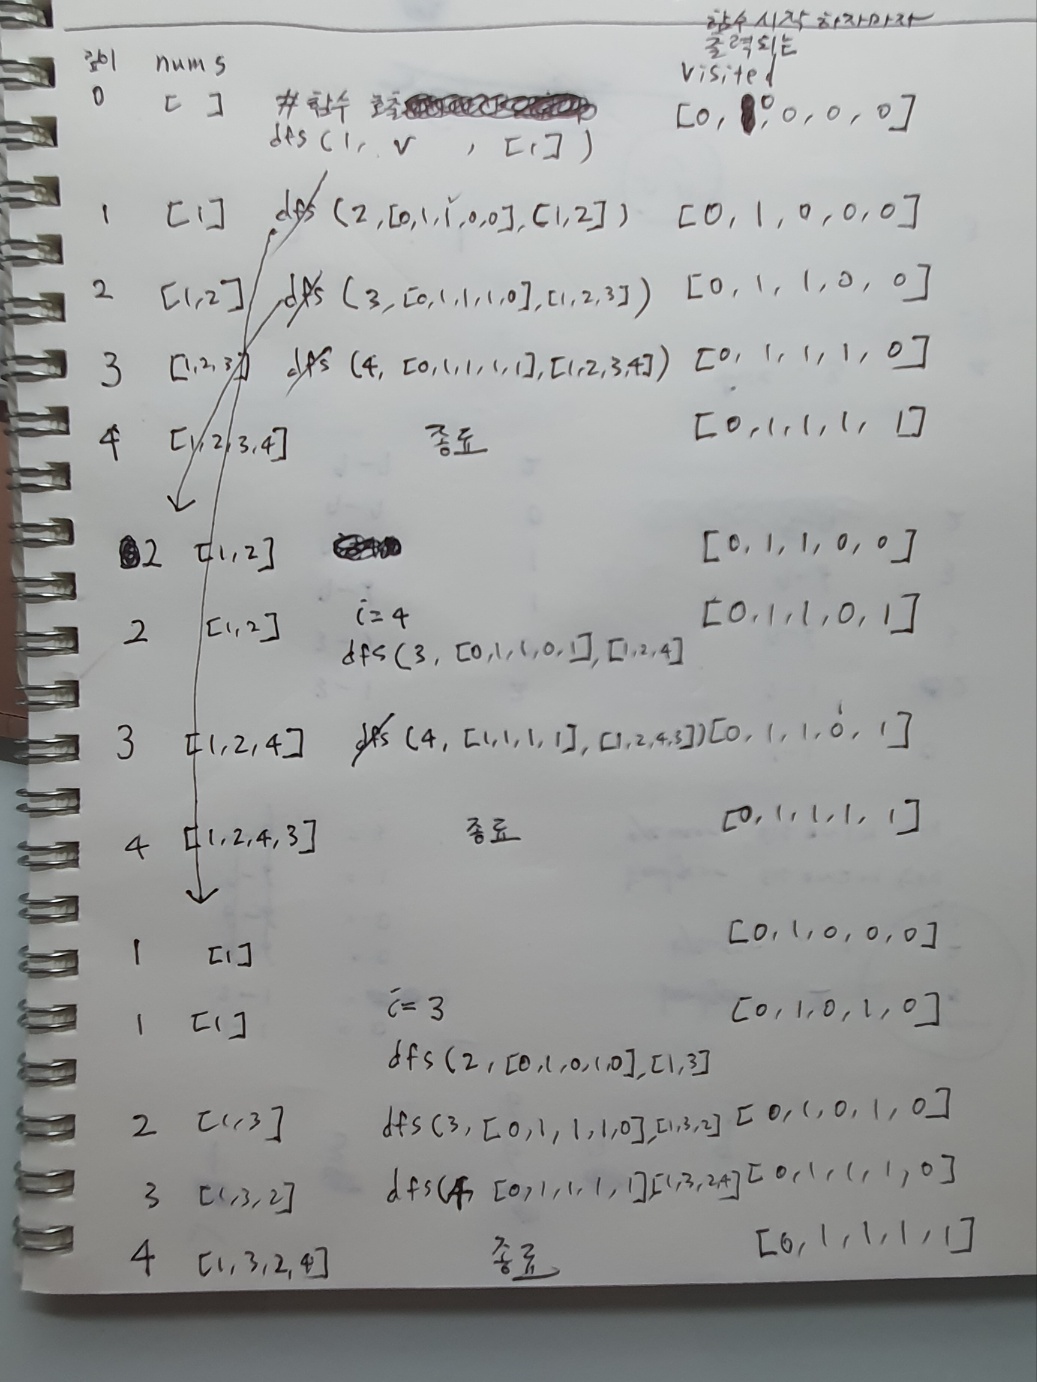 함수 시작 하자마자
출력되는
깊이 nums visited
0 [ ] #함수 호출 [0, 0, 0, 0, 0]
dfs(1, v , [1])
1 [1] dfs (2, [0,1,1,0,0], [1,2]) [0, 1, 0, 0, 0]
2 [1,2] dfs (3, [0,1,1,1,0], [1,2,3]) [0, 1, 1, 0, 0]
3 [1,2,3] dfs (4, [0,1,1,1,1], [1,2,3,4]) [0, 1, 1, 1, 0]
4 [1,2,3,4] 종료 [0, 1, 1, 1, 1]
2 [1,2] [0, 1, 1, 0, 0]
2 [1,2] i=4 [0, 1, 1, 0, 1]
dfs(3, [0,1,1,0,1], [1,2,4]
3 [1,2,4] dfs (4, [1,1,1,1], [1,2,4,3]) [0, 1, 1, 0, 1]
4 [1,2,4,3] 종료 [0, 1, 1, 1, 1]
1 [1] [0, 1, 0, 0, 0]
1 [1] i=3 [0, 1, 0, 1, 0]
dfs(2, [0,1,0,1,0], [1,3]
2 [1,3] dfs(3, [0,1,1,1,0], [1,3,2] [0, 1, 0, 1, 0]
3 [1,3,2] dfs(4, [0,1,1,1,1] [1,3,2,4] [0, 1, 1, 1, 0]
4 [1,3,2,4] 종료 [0, 1, 1, 1, 1]